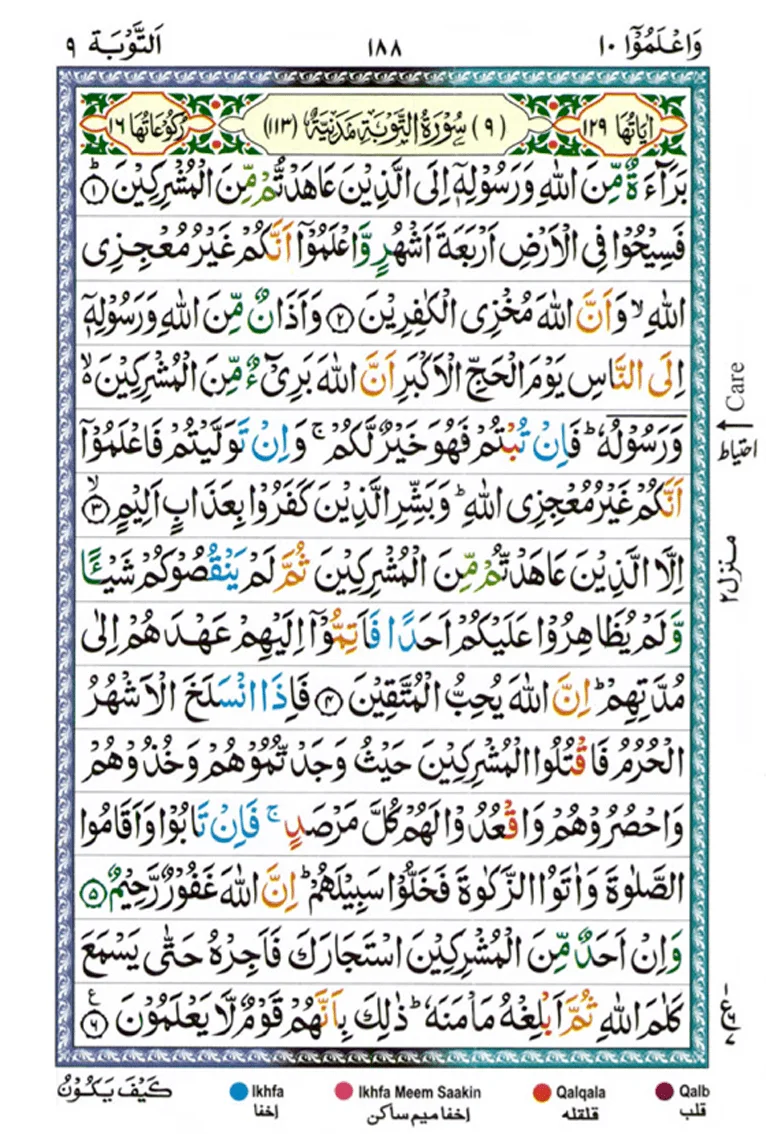 وَاعْلَمُوْۤا ۱۰ ۱۸۸ اَلتَّوْبَة ۹
اٰيَاتُهَا ۱۲۹ (۹) سُوْرَةُ التَّوْبَةِ مَدَنِيَّةٌ (۱۱۳) رُكُوْعَاتُهَا ۱۶
بَرَآءَةٌ مِّنَ اللّٰهِ وَرَسُوْلِهٖۤ اِلَى الَّذِيْنَ عَاهَدْتُّمْ مِّنَ الْمُشْرِكِيْنَ ؕ ﴿۱﴾
فَسِيْحُوْا فِى الْاَرْضِ اَرْبَعَةَ اَشْهُرٍ وَّاعْلَمُوْۤا اَنَّكُمْ غَيْرُ مُعْجِزِى
اللّٰهِ ۙ وَاَنَّ اللّٰهَ مُخْزِى الْكٰفِرِيْنَ ﴿۲﴾ وَاَذَانٌ مِّنَ اللّٰهِ وَرَسُوْلِهٖۤ
اِلَى النَّاسِ يَوْمَ الْحَجِّ الْاَكْبَرِ اَنَّ اللّٰهَ بَرِىْٓءٌ مِّنَ الْمُشْرِكِيْنَ ۙ۬
وَرَسُوْلُهٗ ؕ فَاِنْ تُبْتُمْ فَهُوَ خَيْرٌ لَّكُمْ ۚ وَاِنْ تَوَلَّيْتُمْ فَاعْلَمُوْۤا
اَنَّكُمْ غَيْرُ مُعْجِزِى اللّٰهِ ؕ وَبَشِّرِ الَّذِيْنَ كَفَرُوْا بِعَذَابٍ اَلِيْمٍ ۙ ﴿۳﴾
اِلَّا الَّذِيْنَ عَاهَدْتُّمْ مِّنَ الْمُشْرِكِيْنَ ثُمَّ لَمْ يَنْقُصُوْكُمْ شَيْـًٔا
وَّلَمْ يُظَاهِرُوْا عَلَيْكُمْ اَحَدًا فَاَتِمُّوْۤا اِلَيْهِمْ عَهْدَهُمْ اِلٰى
مُدَّتِهِمْ ؕ اِنَّ اللّٰهَ يُحِبُّ الْمُتَّقِيْنَ ﴿۴﴾ فَاِذَا انْسَلَخَ الْاَشْهُرُ
الْحُرُمُ فَاقْتُلُوا الْمُشْرِكِيْنَ حَيْثُ وَجَدْتُّمُوْهُمْ وَخُذُوْهُمْ
وَاحْصُرُوْهُمْ وَاقْعُدُوْا لَهُمْ كُلَّ مَرْصَدٍ ۚ فَاِنْ تَابُوْا وَاَقَامُوا
الصَّلٰوةَ وَاٰتَوُا الزَّكٰوةَ فَخَلُّوْا سَبِيْلَهُمْ ؕ اِنَّ اللّٰهَ غَفُوْرٌ رَّحِيْمٌ ﴿۵﴾
وَاِنْ اَحَدٌ مِّنَ الْمُشْرِكِيْنَ اسْتَجَارَكَ فَاَجِرْهُ حَتّٰى يَسْمَعَ
كَلٰمَ اللّٰهِ ثُمَّ اَبْلِغْهُ مَاْمَنَهٗ ؕ ذٰلِكَ بِاَنَّهُمْ قَوْمٌ لَّا يَعْلَمُوْنَ ﴿۶﴾ ع
Care
احتياط
منزل ۲
كَيْفَ يَكُوْنُ
Ikhfa
اخفا
Ikhfa Meem Saakin
اخفا ميم ساكن
Qalqala
قلقله
Qalb
قلب